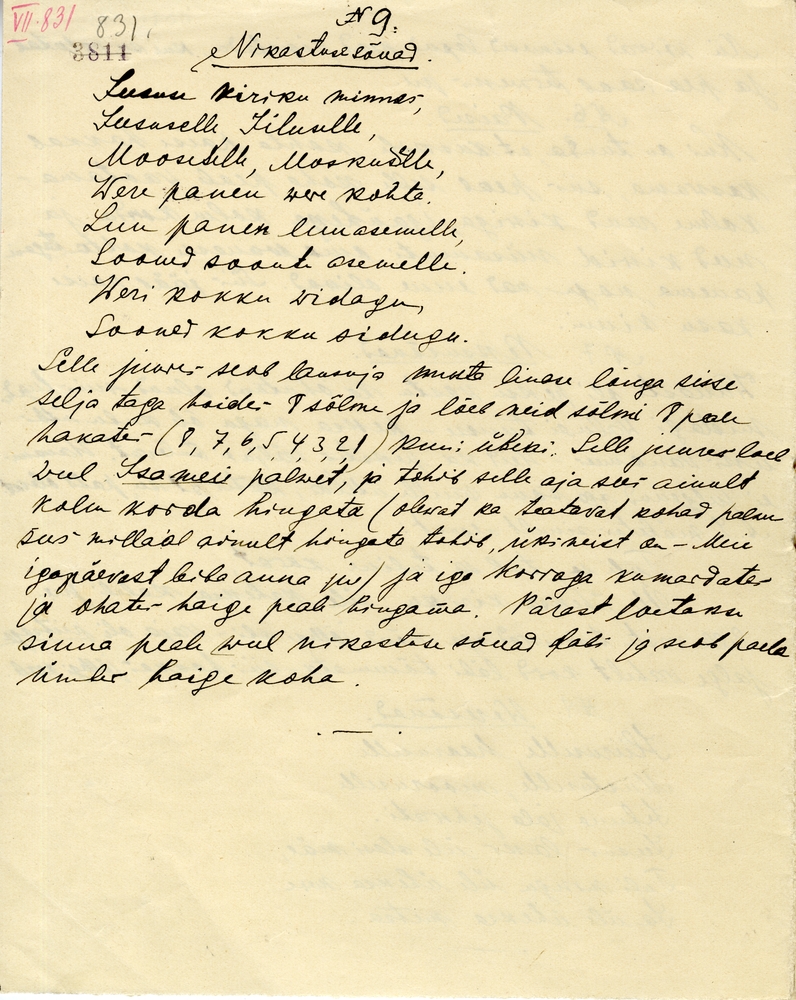 VII·831 831.
3811
№ 9.
Nikastuse sõnad.
Jeesuse kiriku minnes,
Jeesuselle, Jiluselle,
Mooselelle, Moskuselle,
Were panen were kohta.
Luu panen luuasemelle,
Sooned soonte asemelle.
Weri kokku widagu,
Sooned kokku sidugu.
Selle juures seob lausuja musta linase lõnga sisse
selja taga hoides 8 sõlme ja loeb neid sõlmi 8 peale
hakates (8, 7, 6, 5, 4, 3, 2, 1) kuni üheki. Selle juures loeb
weel Isa meie palwet, ja tohib selle aja sees ainult
kolm korda hingata (olewat ka teatavat kohad palwe
sees millaal ainult hingata tohib, üks neist on – Meie
igapäevast leiba anna jne) ja iga korraga kumardates
ja ohates haige peale hingama. Pärast loetakse
sinna peale weel nikastuse sõnad läbi ja seob paela
ümber haige koha.